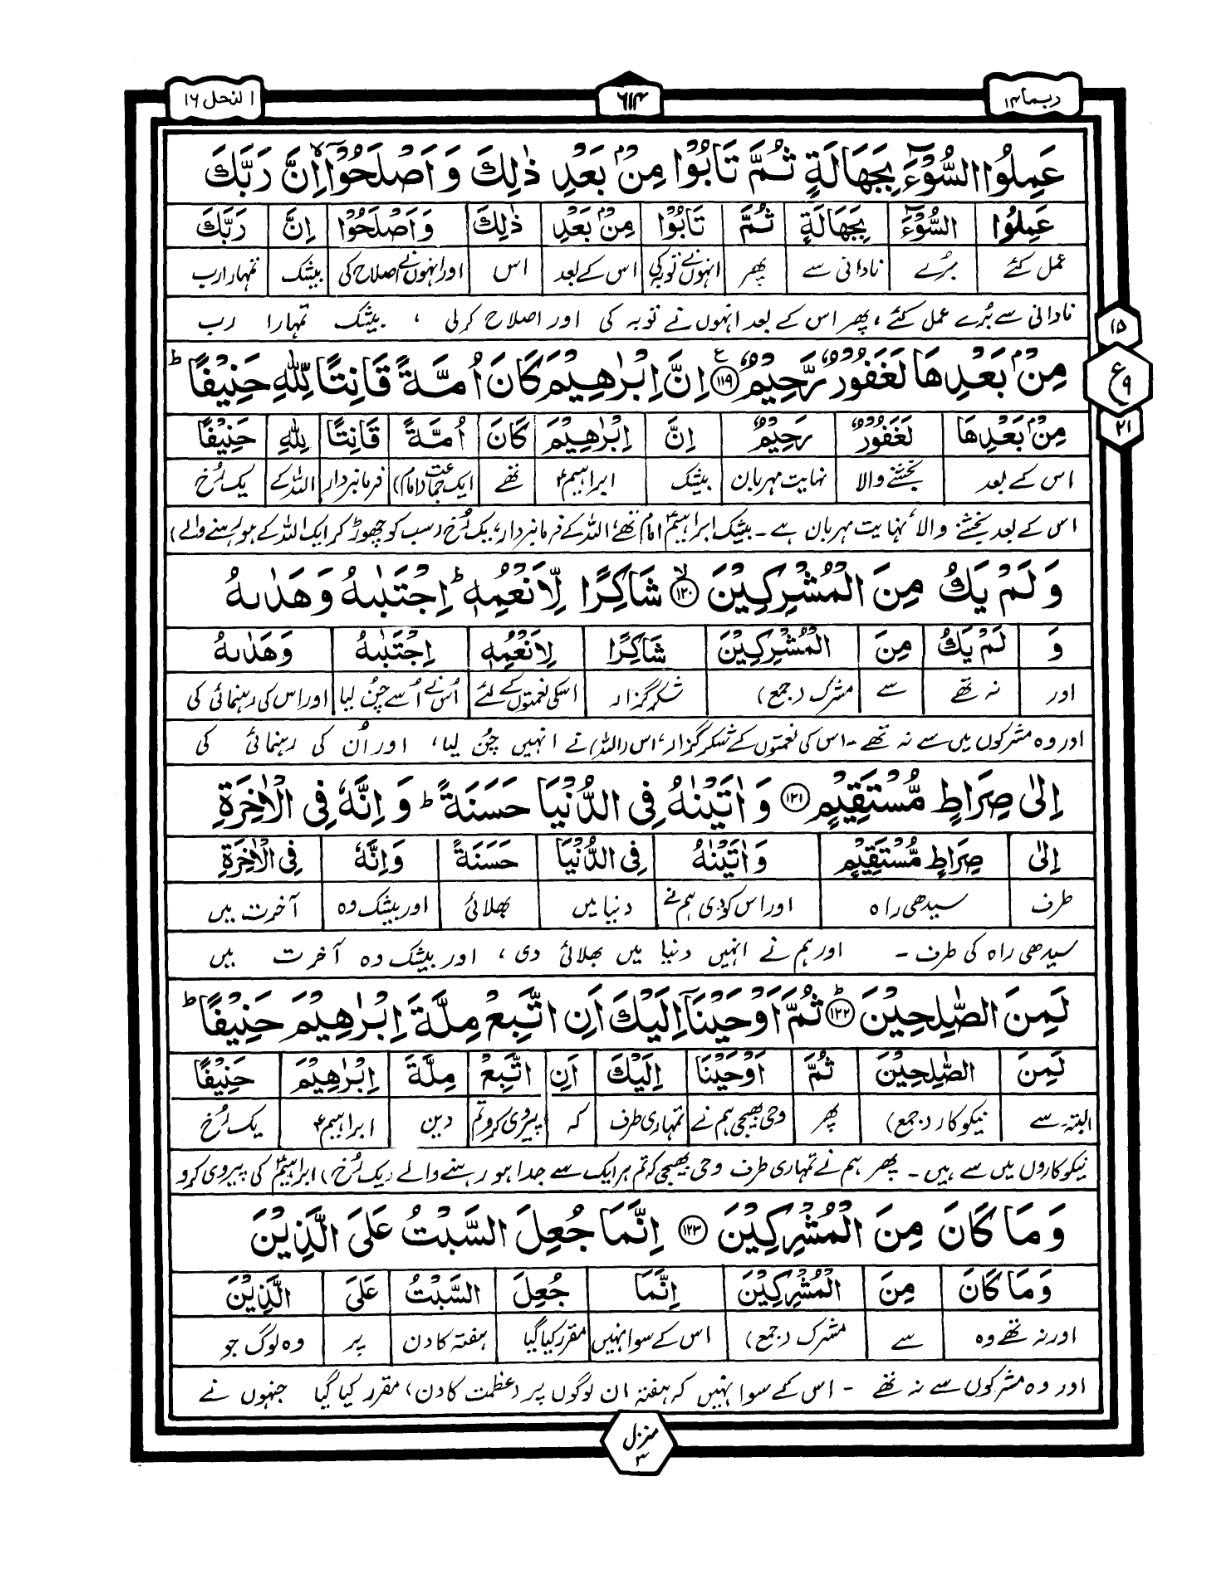 ربما ۱۴
۶۱۴
النحل ۱۶
عَمِلُوا السُّوْٓءَ بِجَهَالَةٍ ثُمَّ تَابُوْا مِنْۢ بَعْدِ ذٰلِكَ وَاَصْلَحُوْٓا ۙ اِنَّ رَبَّكَ
عَمِلُوا السُّوْٓءَ بِجَهَالَةٍ ثُمَّ تَابُوْا مِنْۢ بَعْدِ ذٰلِكَ وَاَصْلَحُوْٓا اِنَّ رَبَّكَ
عمل کئے بُرے نادانی سے پھر انہوں نے توبہ کی اس کے بعد اس اور انہوں نے اصلاح کی بیشک تمہارا رب
نادانی سے بُرے عمل کئے، پھر اس کے بعد انہوں نے توبہ کی اور اصلاح کر لی ، بیشک تمہارا رب
۱۵
مِنْۢ بَعْدِهَا لَغَفُوْرٌ رَّحِيْمٌ ۱۱۹ اِنَّ اِبْرٰهِيْمَ كَانَ اُمَّةً قَانِتًا لِّلّٰهِ حَنِيْفًا ؕ
ع ۹
۲۱
مِنْۢ بَعْدِهَا لَغَفُوْرٌ رَحِيْمٌ اِنَّ اِبْرٰهِيْمَ كَانَ اُمَّةً قَانِتًا لِلّٰهِ حَنِيْفًا
اس کے بعد بخشنے والا نہایت مہربان بیشک ابراہیمؑ تھے ایک جماعت (امام) فرمانبردار اللہ کے یک رُخ
اس کے بعد بخشنے والا نہایت مہربان ہے ۔ بیشک ابراہیمؑ امام تھے، اللہ کے فرمانبردار، یک رُخ (سب کو چھوڑ کر ایک اللہ کے ہو رہنے والے)
وَلَمْ يَكُ مِنَ الْمُشْرِكِيْنَ ۱۲۰ ۙ شَاكِرًا لِّاَنْعُمِهٖ ؕ اِجْتَبٰىهُ وَهَدٰىهُ
وَ لَمْ يَكُ مِنَ الْمُشْرِكِيْنَ شَاكِرًا لِاَنْعُمِهٖ اِجْتَبٰىهُ وَهَدٰىهُ
اور نہ تھے سے مشرک (جمع) شکر گزار اسکی نعمتوں کے لئے اُس نے اُسے چن لیا اور اس کی رہنمائی کی
اور وہ مشرکوں میں سے نہ تھے ۔ اس کی نعمتوں کے شکر گزار، اس (اللہ) نے انہیں چن لیا، اور اُن کی رہنمائی کی
اِلٰى صِرَاطٍ مُّسْتَقِيْمٍ ۱۲۱ وَاٰتَيْنٰهُ فِى الدُّنْيَا حَسَنَةً ؕ وَاِنَّهٗ فِى الْاٰخِرَةِ
اِلٰى صِرَاطٍ مُّسْتَقِيْمٍ وَاٰتَيْنٰهُ فِى الدُّنْيَا حَسَنَةً وَاِنَّهٗ فِى الْاٰخِرَةِ
طرف سیدھی راہ اور اس کو دی ہم نے دنیا میں بھلائی اور بیشک وہ آخرت میں
سیدھی راہ کی طرف ۔ اور ہم نے انہیں دنیا میں بھلائی دی ، اور بیشک وہ آخرت میں
لَمِنَ الصّٰلِحِيْنَ ؕ ۱۲۲ ثُمَّ اَوْحَيْنَآ اِلَيْكَ اَنِ اتَّبِعْ مِلَّةَ اِبْرٰهِيْمَ حَنِيْفًا ؕ
لَمِنَ الصّٰلِحِيْنَ ثُمَّ اَوْحَيْنَا اِلَيْكَ اَنِ اتَّبِعْ مِلَّةَ اِبْرٰهِيْمَ حَنِيْفًا
البتہ ۔ سے نیکو کار (جمع) پھر وحی بھیجی ہم نے تمہاری طرف کہ پیروی کرو تم دین ابراہیمؑ یک رُخ
نیکو کاروں میں سے ہیں ۔ پھر ہم نے تمہاری طرف وحی بھیجی کہ تم ہر ایک سے جدا ہو رہنے والے (یک رُخ) ابراہیمؑ کی پیروی کرو
وَمَا كَانَ مِنَ الْمُشْرِكِيْنَ ۱۲۳ اِنَّمَا جُعِلَ السَّبْتُ عَلَى الَّذِيْنَ
وَمَا كَانَ مِنَ الْمُشْرِكِيْنَ اِنَّمَا جُعِلَ السَّبْتُ عَلَى الَّذِيْنَ
اور نہ تھے وہ سے مشرک (جمع) اس کے سوا نہیں مقرر کیا گیا ہفتہ کا دن پر وہ لوگ جو
اور وہ مشرکوں سے نہ تھے ۔ اس کے سوا نہیں کہ ہفتہ ان لوگوں پر (عظمت کا دن) مقرر کیا گیا جنہوں نے
منزل ۳